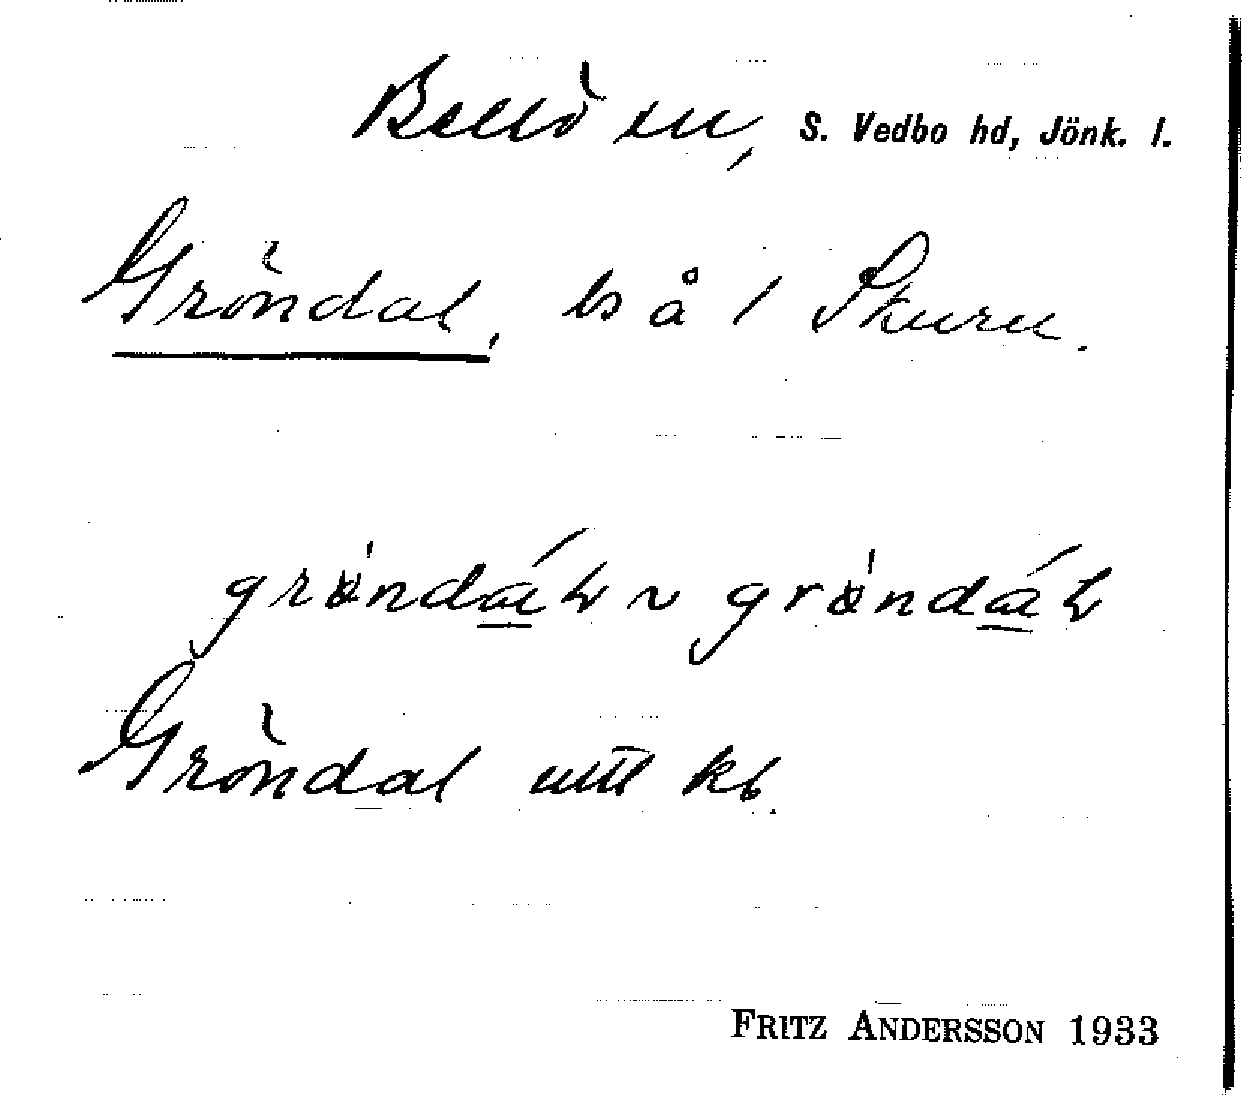 Bellö sn, S. Vedbo hd, Jönk. l.
Gröndal, ls å 1 Skuru.
gröndál ~ gröndál
Gröndal uttl kb.
FRITZ ANDERSSON 1933